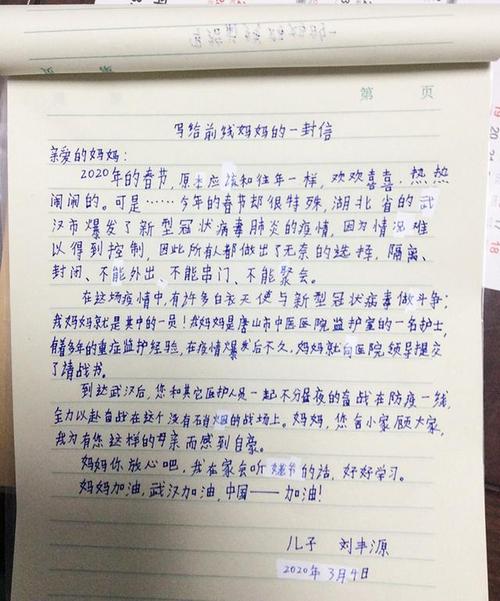 第 页
写给前线妈妈的一封信
亲爱的妈妈:
2020年的春节,原本应该和往年一样,欢欢喜喜、热热
闹闹的。可是……今年的春节却很特殊,湖北省的武
汉市爆发了新型冠状病毒肺炎的疫情,因为情况难
以得到控制,因此所有人都做出了无奈的选择,隔离、
封闭、不能外出、不能串门、不能聚会。
在这场疫情中,有许多白衣天使与新型冠状病毒做斗争;
我妈妈就是其中的一员!我妈妈是唐山市中医医院监护室的一名护士,
有着多年的重症监护经验,在疫情爆发后不久,妈妈就向医院领导提交
了请战书。
到达武汉后,您和其它医护人员一起不分昼夜的奋战在防疫一线,
全力以赴奋战在这个没有硝烟的战场上。妈妈,您舍小家顾大家,
我为有您这样的母亲而感到自豪。
妈妈你放心吧,我在家会听爷爷的话,好好学习。
妈妈加油,武汉加油,中国——加油!
儿子 刘丰源
2020年3月4日
19
17
18